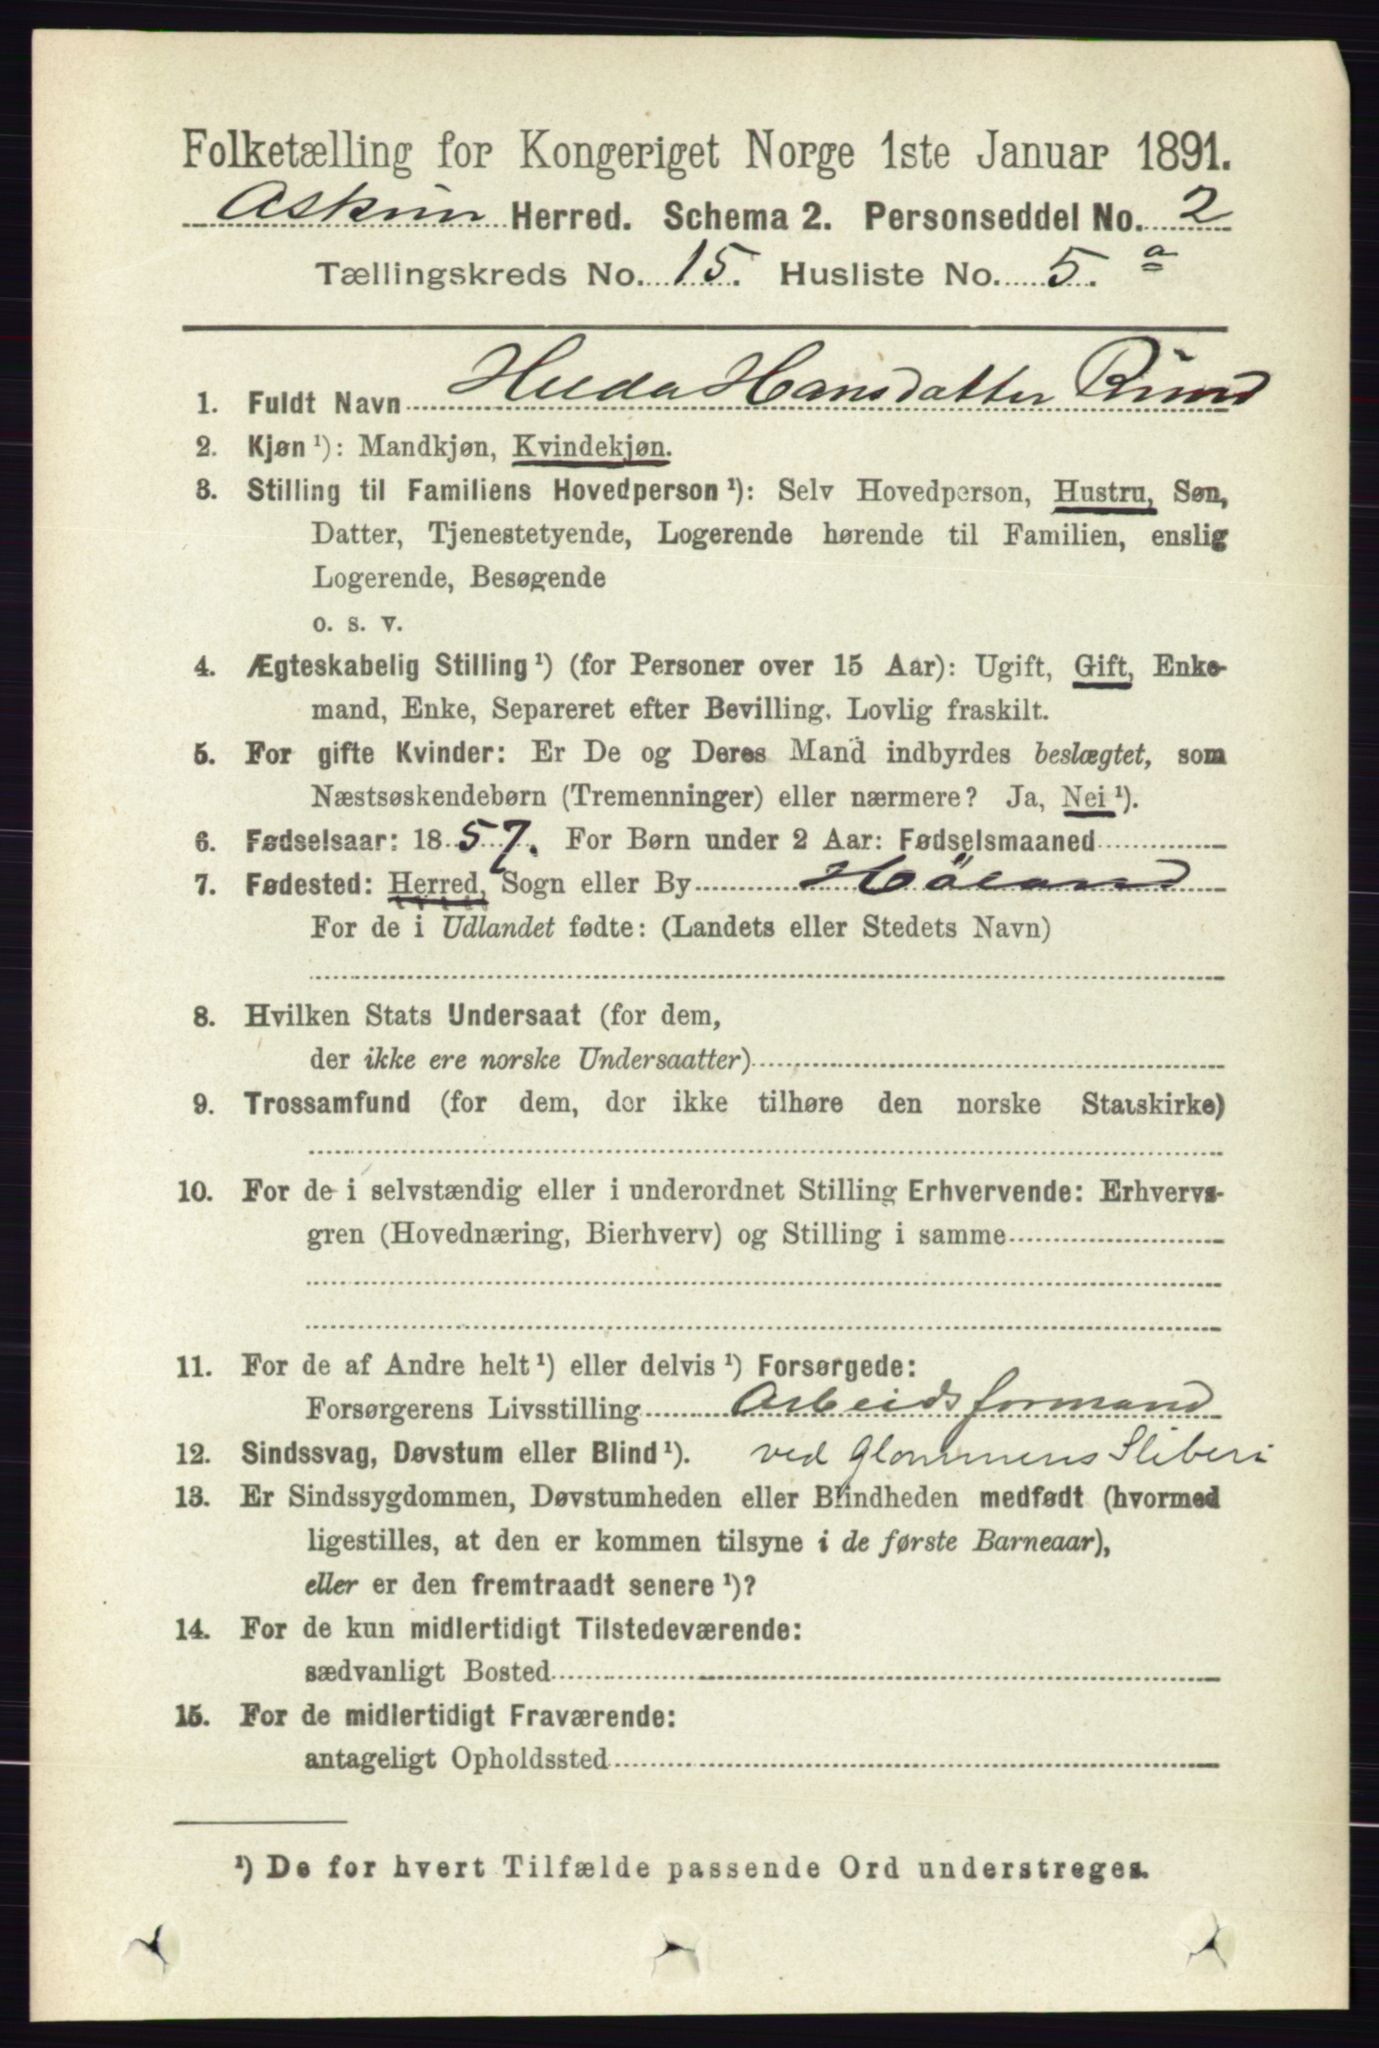 Folketælling for Kongeriget Norge 1ste Januar 1891.
Askim Herred. Schema 2. Personseddel No. 2
Tællingskreds No. 15. Husliste No. 5. a
1. Fuldt Navn Hilda Hansdatter
2. Kjøn ¹): Mandkjøn, Kvindekjøn.
3. Stilling til Familiens Hovedperson ¹): Selv Hovedperson, Hustru, Søn,
Datter, Tjenestetyende, Logerende hørende til Familien, enslig
Logerende, Besøgende
o. s. v.
4. Ægteskabelig Stilling ¹) (for Personer over 15 Aar): Ugift, Gift, Enke-
mand, Enke, Separeret efter Bevilling. Lovlig fraskilt.
5. For gifte Kvinder: Er De og Deres Mand indbyrdes beslægtet, som
Næstsøskendebørn (Tremenninger) eller nærmere? Ja, Nei ¹).
6. Fødselsaar: 1857. For Børn under 2 Aar: Fødselsmaaned
7. Fødested: Herred, Sogn eller By Höland
For de i Udlandet fødte: (Landets eller Stedets Navn)
8. Hvilken Stats Undersaat (for dem,
der ikke ere norske Undersaatter)
9. Trossamfund (for dem, der ikke tilhøre den norske Statskirke)
10. For de i selvstændig eller i underordnet Stilling Erhvervende: Erhvervs-
gren (Hovednæring, Bierhverv) og Stilling i samme
11. For de af Andre helt ¹) eller delvis ¹) Forsørgede:
Forsørgerens Livsstilling Arbeidsformand
12. Sindssvag, Døvstum eller Blind ¹). ved Glommens Sliberi
13. Er Sindssygdommen, Døvstumheden eller Blindheden medfødt (hvormed
ligestilles, at den er kommen tilsyne i de første Barneaar),
eller er den fremtraadt senere ¹)?
14. For de kun midlertidigt Tilstedeværende:
sædvanligt Bosted
15. For de midlertidigt Fraværende:
antageligt Opholdssted
¹) De for hvert Tilfælde passende Ord understreges.